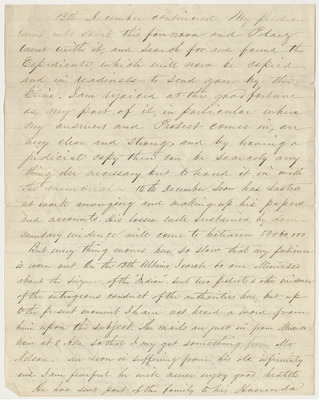 13th December continued. My petition
went into Court this forenoon and Pelaez
went with it, and search for and found the
Expediente which will now be copied
and in readiness to send you by the
I am rejoiced at this good fortune
as my part of it, in particular where
my answers and Protest comes in, are
very clear and strong, and by having a
judicial copy there can be scarcely any
thing else necessary but to hand it in with
the memorial. 18th December Leon has lasted
at work arranging and making up his papers
and accounts. His losses well sustained by docu-
mentary evidence will come to between
But every thing moves here so slow that my patience
is worn out. On the 13th Ultimo I wrote to our Minister
about the seizure of the "Indian" sent two protests & other evidence
of the outrageous conduct of the authorities here, but up
to the present moment I have not heard a word from
him upon the subject. The mails are just in from Mexico
here at 2 so that I may get something from Mr
Leon is suffering from his old infirmity
and I am fearful he will never enjoy good health
He has sent part of the family to his Hacienda